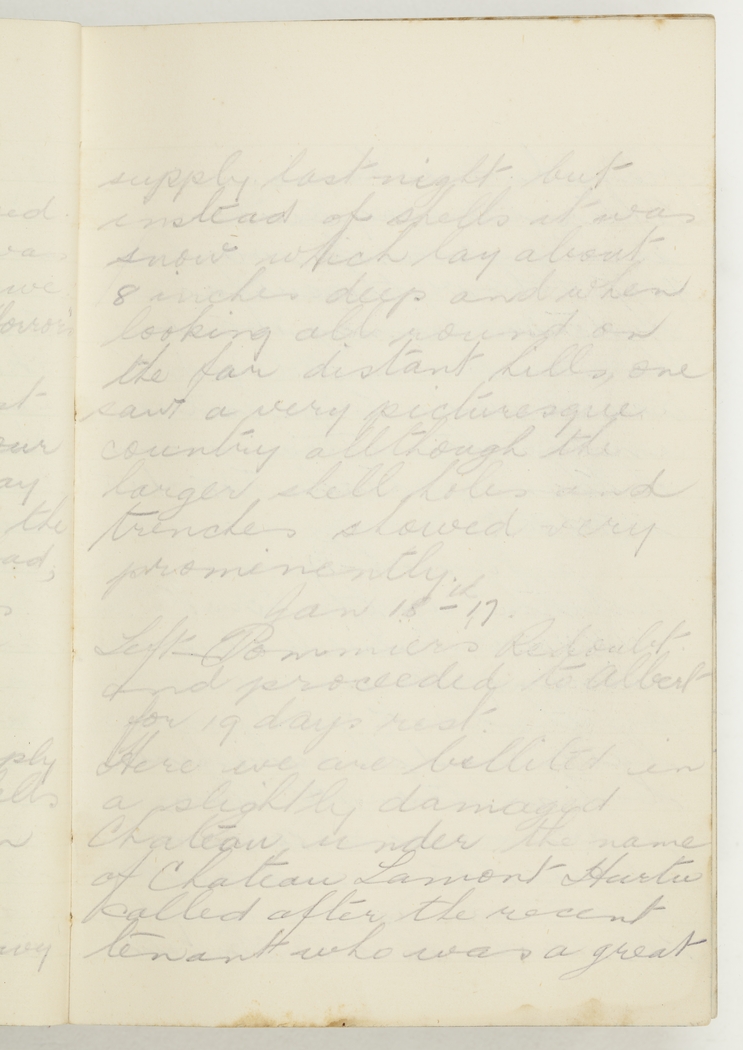 supply last night but
instead of shells it was
snow which lay about
8 inches deep and when
looking all round on
the far distant hills, one
saw a very picturesque
country allthough the
larger shell holes and
trenches showed very
prominently.
Jan 18th 17.
Left Pommiers Redoubt
and proceeded to Albert
for 19 days rest.
Here we are billited in
a slightly damaged
Chateau under the name
of Chateau Lamont Hurtu
called after the recent
tenant who was a great